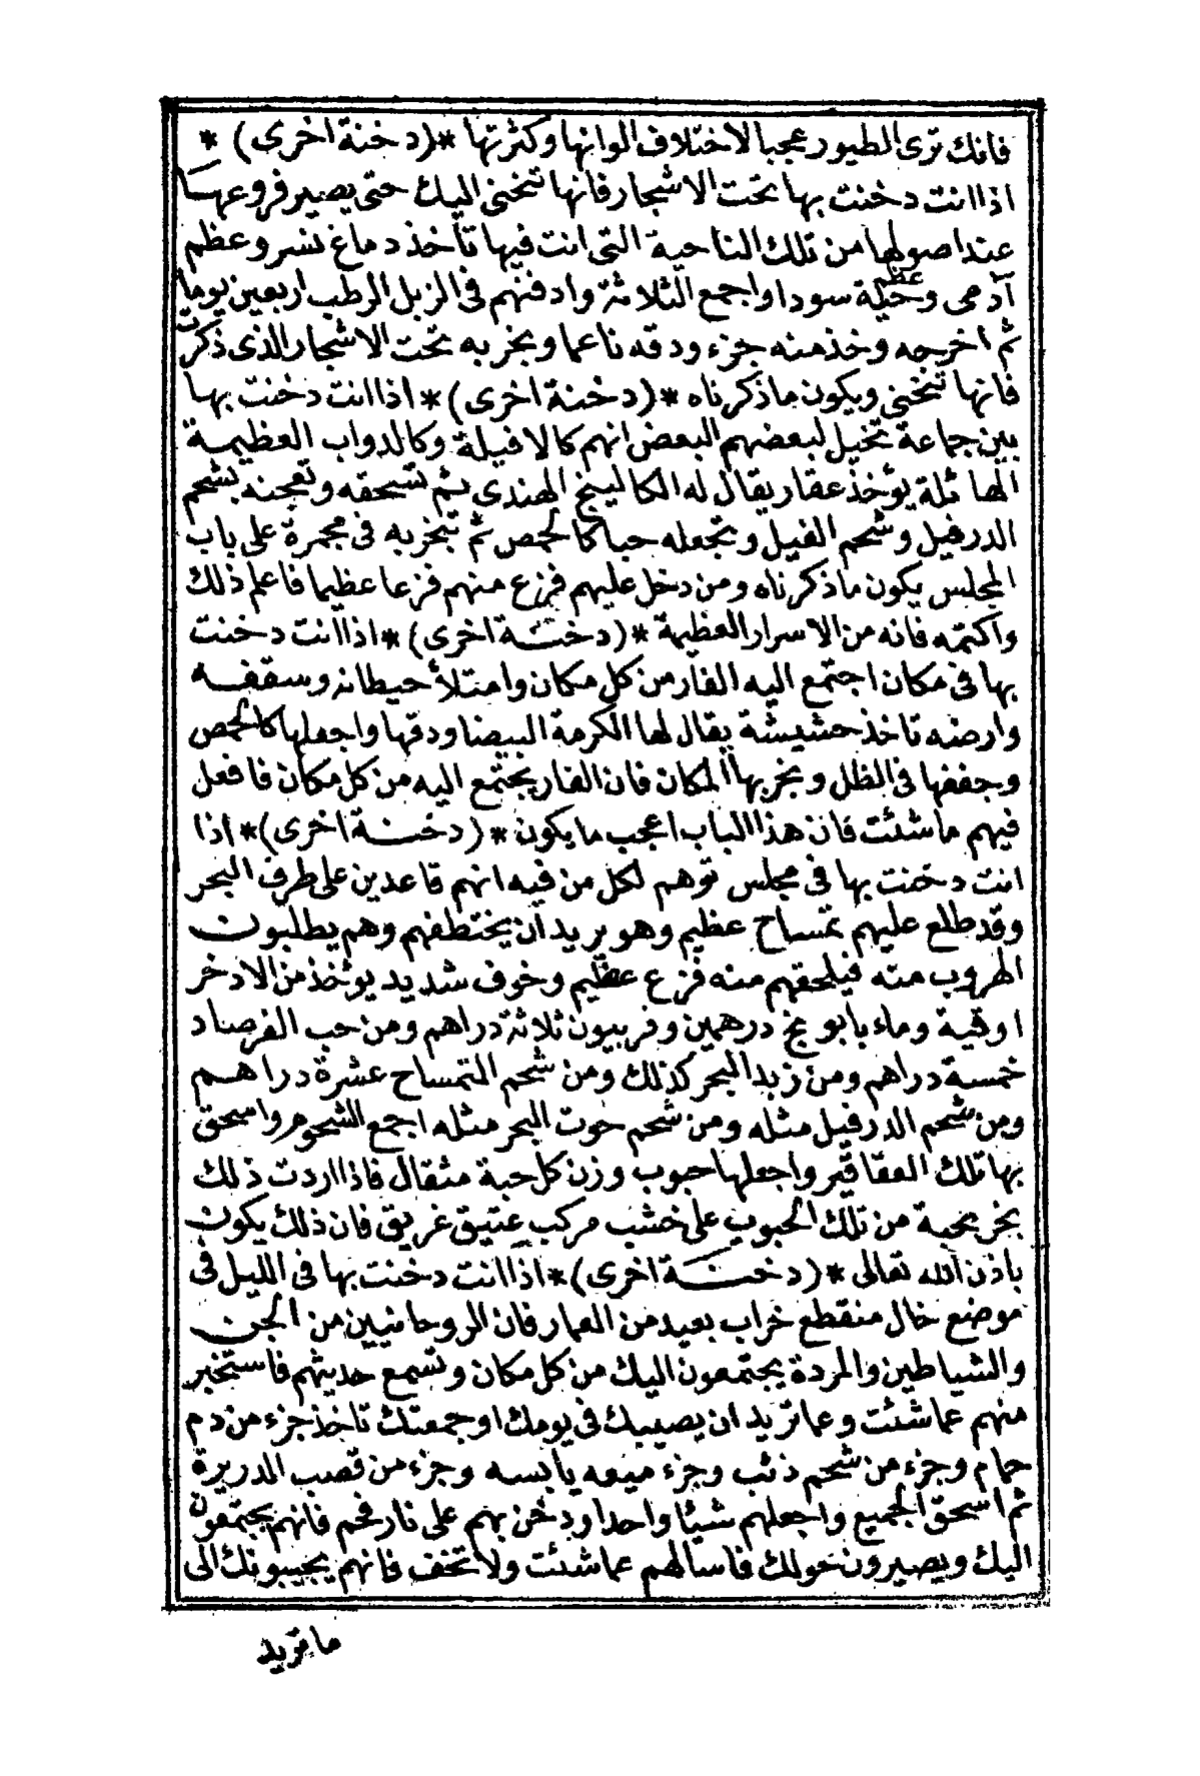 فانك ترى الطيور عجبا لاختلاف الوانها وكثرتها *(دخنة اخرى) *
اذا انت دخنت بها تحت الاشجار فانها تنحنى اليك حتى يصير فروعها
عند اصولها من تلك الناحية التى انت فيها تأخذ دماغ نسر وعظم
آدمى وحية سودا واجمع الثلاثة وادفنهم فى الزبل الرطب اربعين يوما
ثم اخرجه وخذ منه جزء ودقه ناعما وبخر به تحت الاشجار الذى ذكرت
فانها تنحنى ويكون ما ذكرناه *(دخنة اخرى)* اذا انت دخنت بها
بين جماعة تخيل لبعضهم البعض انهم كالافيلة وكالدواب العظيمة
الهائلة يؤخذ عقار يقال له الكالينج الهندى ثم تسحقه وتعجنه بشحم
الدرفيل وشحم الفيل وتجعله حبا كالحمص ثم تبخر به فى مجمرة على باب
المجلس يكون ما ذكرناه ومن دخل عليهم فزع منهم فزعا عظيما فاعلم ذلك
واكتمه فانه من الاسرار العظيمة *(دخنة اخرى)* اذا انت دخنت
بها فى مكان اجتمع اليه الفار من كل مكان وامتلأ حيطانه وسقفه
وارضه تاخذ حشيشة يقال لها الكرمة البيضا ودقها واجعلها كالحمص
وجففها فى الظل وبخر بها المكان فان الفار يجتمع اليه من كل مكان فافعل
فيهم ما شئت فان هذا الباب اعجب ما يكون *(دخنة اخرى)* اذا
انت دخنت بها فى مجلس توهم لكل من فيه انهم قاعدين على طرف البحر
وقد طلع عليهم تمساح عظيم وهو يريد ان يختطفهم وهم يطلبون
الهروب منه فيلحقهم منه فزع عظيم وخوف شديد يوخذ من الادخر
اوقية وماء بابونج درهمين وفربيون ثلاثة دراهم ومن حب الفرصاد
خمسة دراهم ومن زبد البحر كذلك ومن شحم التمساح عشرة دراهم
ومن شحم الدرفيل مثله ومن شحم حوت البحر مثله اجمع الشحوم واسحق
بها تلك العقاقير واجعلها حبوب وزن كل حبة مثقال فاذا اردت ذلك
بخر بحبة من تلك الحبوب على خشب مركب عتيق غريق فان ذلك يكون
باذن الله تعالى *(دخنة اخرى)* اذا انت دخنت بها فى الليل فى
موضع خال منقطع خراب بعيد من العمار فان الروحانيين من الجن
والشياطين والمردة يجتمعون اليك من كل مكان وتسمع حديثهم فاستخبر
منهم عما شئت وعما تريد ان يصيبك فى يومك او جمعتك تاخذ جزء من دم
حمام وجزء من شحم ذئب وجزء ميعه يابسه وجزء من قصب الدريرة
ثم اسحق الجميع واجعلهم شيئا واحدا ودخن بهم على نار فحم فانهم يجتمعون
اليك ويصيرون حولك فاسالهم عما شئت ولا تخف فانهم يجيبونك الى
ما تريد